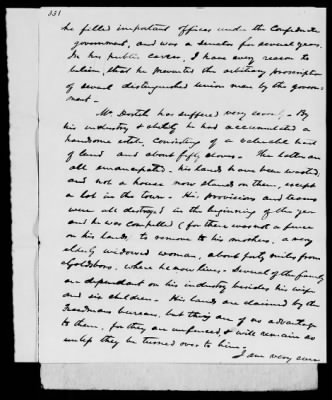 331
he filled important offices under the Confederate
government, and was a senator for several years.
In his public career, I have every reason to
believe, that he prevented the arbitrary proscription
of several distinguished union men by the govern-
ment.
Mr. Dortch has suffered very severely. By
his industry & ability he had accumulated a
handsome estate, consisting of a valuable tract
of land and about fifty slaves. The latter are
all emancipated. his lands have been wasted,
and not a house now stands on them, except
a lot in the town. His provisions and teams
were all destroyed in the beginning of the year
and he was compelled (for there was not a fence
on his lands, to remove to his mothers, a very
elderly widowed woman, about forty miles from
Goldsboro, where he now lives. Several of the family
are dependant on his industry besides his wife
and six children. His lands are claimed by the
Freedmans bureau, but they are of no advantage
to them, for they are unfenced, & will remain so
unless they be turned over to him.
I am very